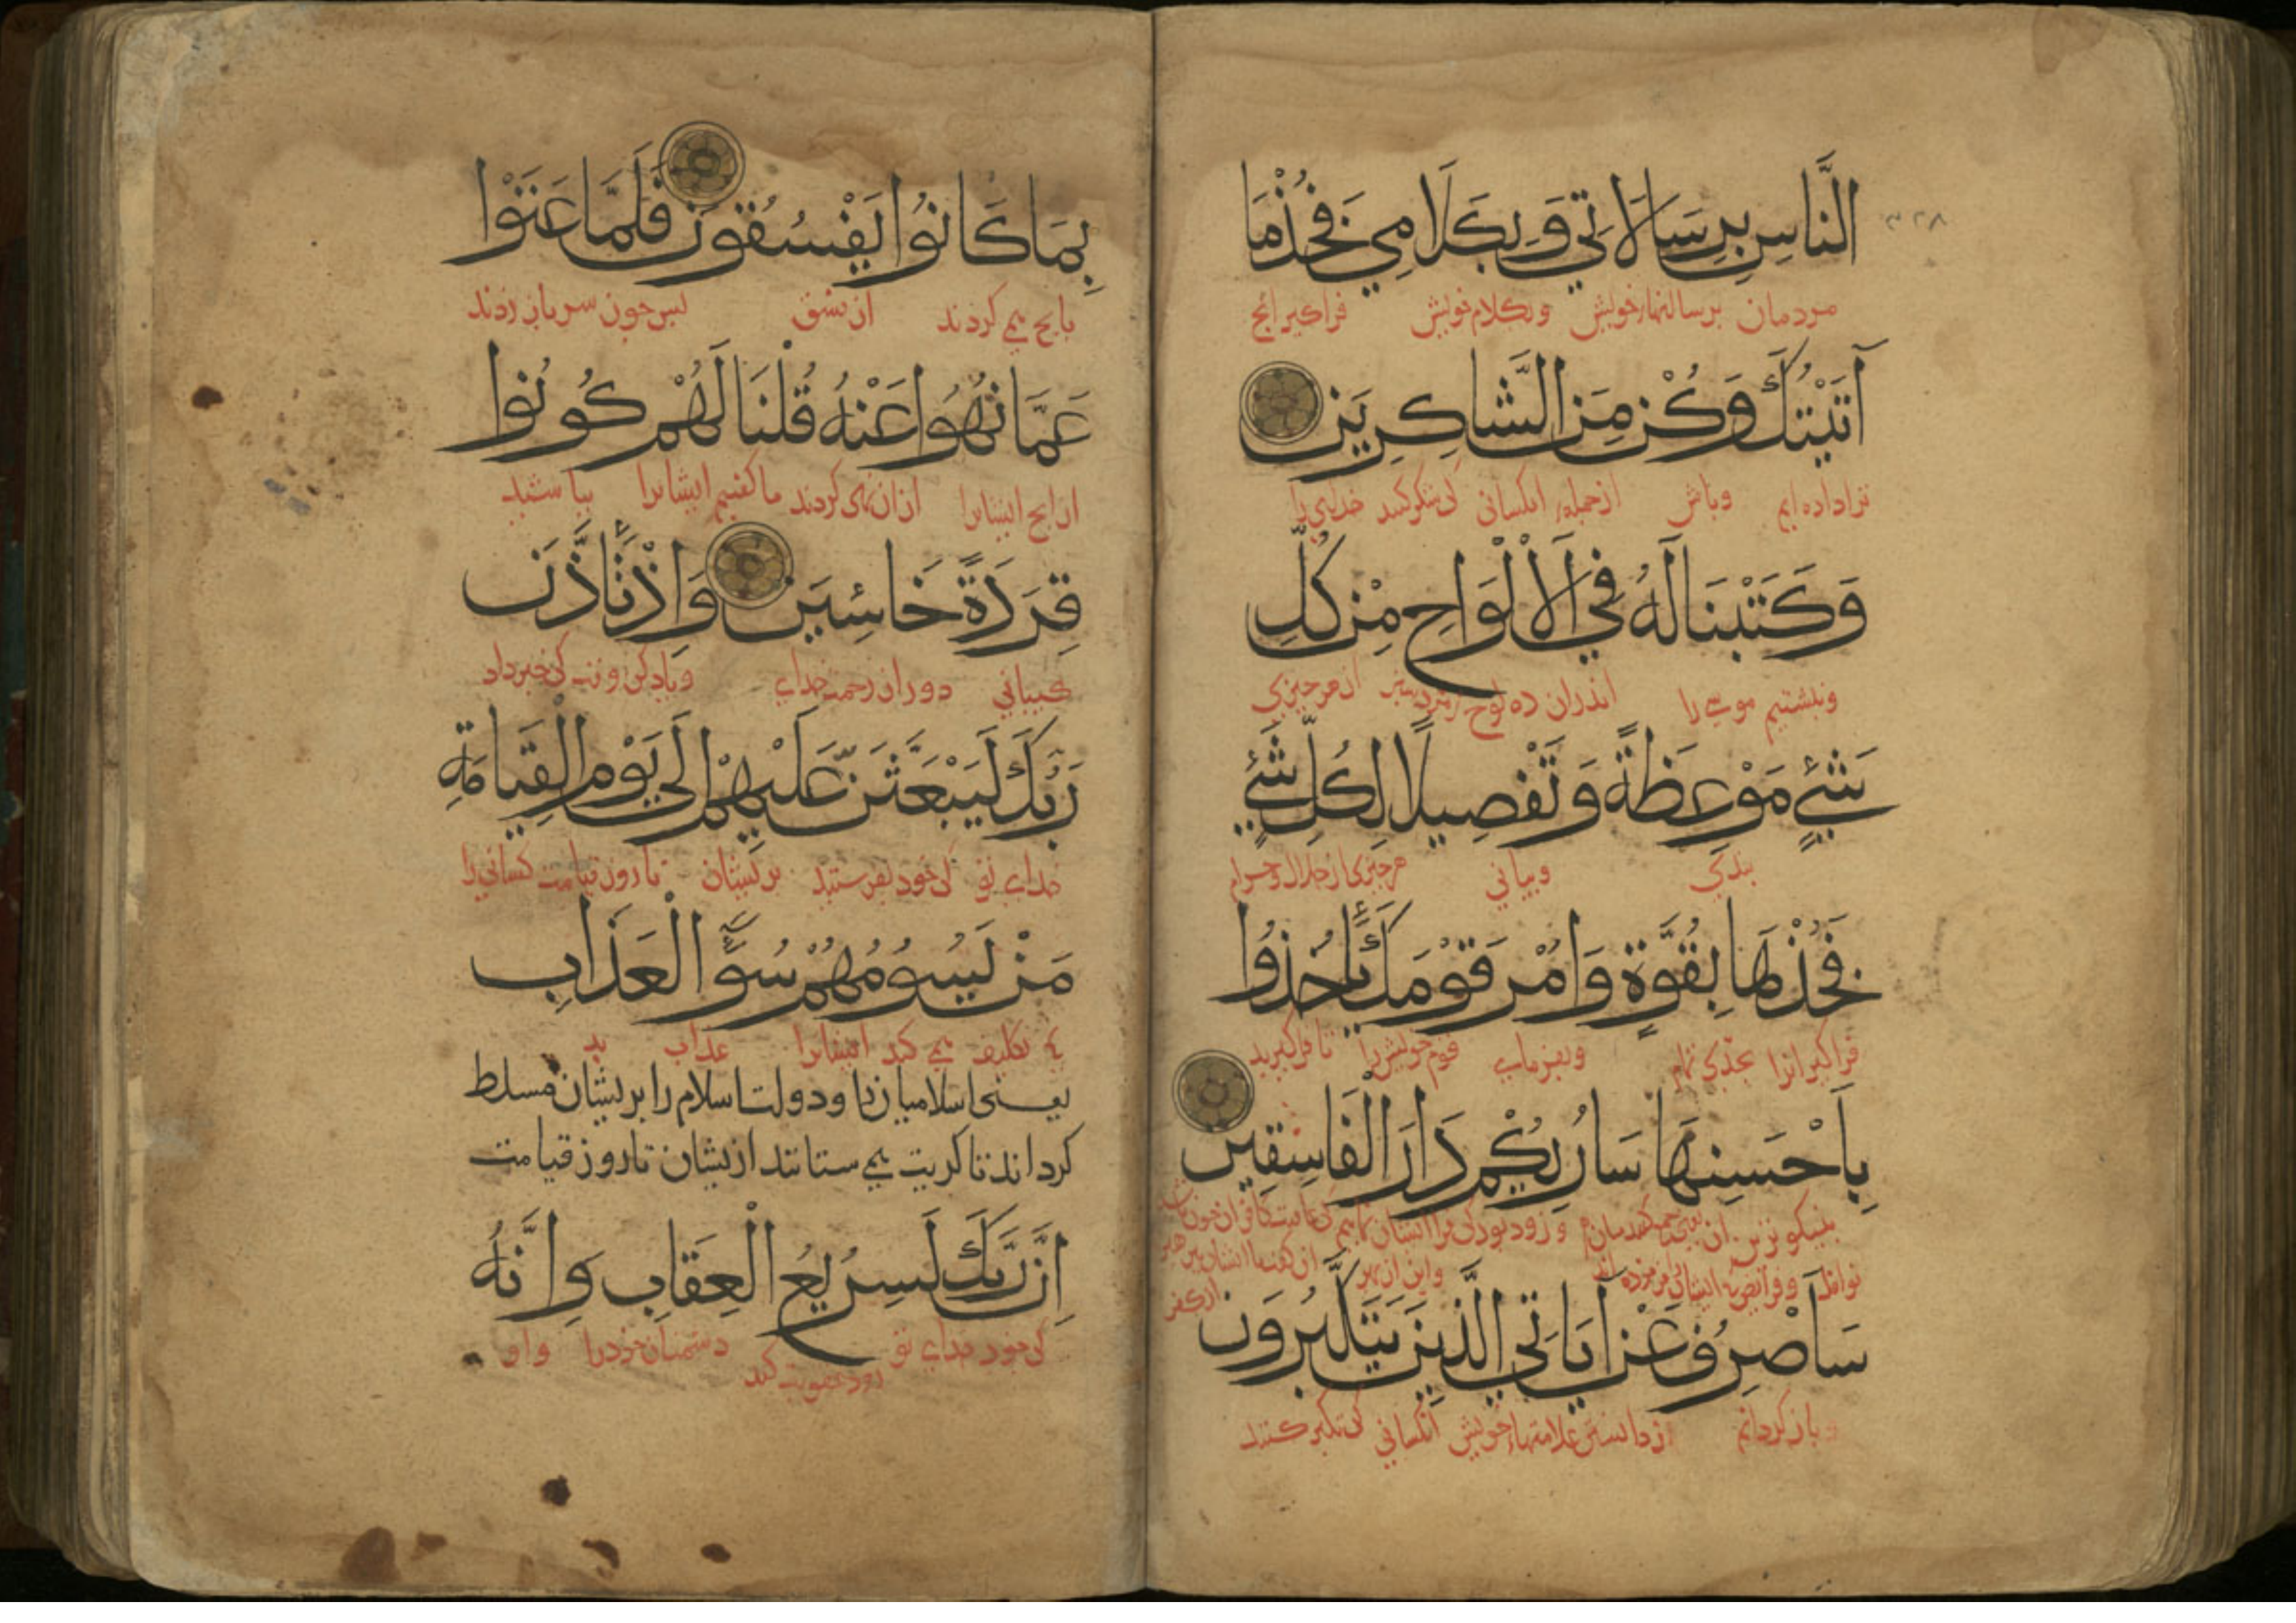 النَّاسِ بِرِسَالَاتِي وَبِكَلَامِي فَخُذْ مَا
مردمان برسالتهاء خویش وبکلام خویش فراکیر انج
آتَيْتُكَ وَكُنْ مِنَ الشَّاكِرِينَ
ترا داده ایم وباش از جمله انکسانی کی شکر کنند خدای را
وَكَتَبْنَا لَهُ فِي الْأَلْوَاحِ مِنْ كُلِّ
ونبشتیم موسی را اندران ده لوح از هر چیزی
شَيْءٍ مَوْعِظَةً وَتَفْصِيلًا لِكُلِّ شَيْءٍ
بندی وبیانی هر چیزی از حلال وحرام
فَخُذْهَا بِقُوَّةٍ وَأْمُرْ قَوْمَكَ يَأْخُذُوا
فراکیر انرا بجدی تمام وبفرمای قوم خویش را تا فراکیرند
بِأَحْسَنِهَا سَأُرِيكُمْ دَارَ الْفَاسِقِينَ
بنیکوترین ان وزود بود کی
سَأَصْرِفُ عَنْ آيَاتِيَ الَّذِينَ يَتَكَبَّرُونَ
باز کردانم از دانستن علامتهاء خویش انکسانی کی تکبر کنند
بِمَا كَانُوا يَفْسُقُونَ فَلَمَّا عَتَوْا
بانج می کردند از فسق بس جون سر باز زدند
عَمَّا نُهُوا عَنْهُ قُلْنَا لَهُمْ كُونُوا
از انج ایشانرا از ان نهی کردند ما کفتیم ایشانرا بباشید
قِرَدَةً خَاسِئِينَ وَإِذْ تَأَذَّنَ
کبیانی دور از رحمت خدای ویاد کن وقت کی خبر داد
رَبُّكَ لَيَبْعَثَنَّ عَلَيْهِمْ إِلَى يَوْمِ الْقِيَامَةِ
خدای تو کی خود بفرستند بریشان تا روز قیامت کسانی را
مَنْ يَسُومُهُمْ سُوءَ الْعَذَابِ
تکلیف می کند ایشانرا عذاب بد
یعنی اسلامیان را ودولت اسلام را بریشان مسلط
کرداند تا کزیت می ستانند ازیشان تا روز قیامت
إِنَّ رَبَّكَ لَسَرِيعُ الْعِقَابِ وَإِنَّهُ
کی خود خدای تو زود عقوبت کند دشمنان خود را واو